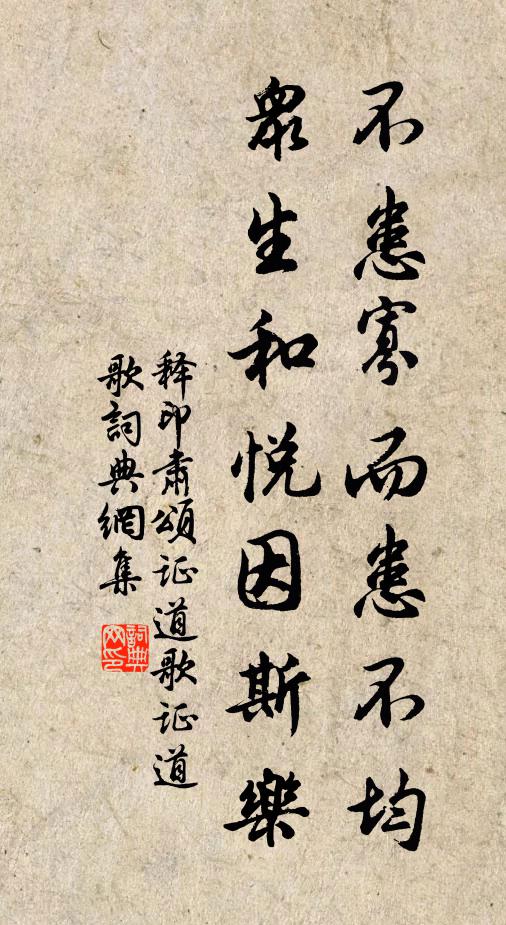 不患寡而患不均
眾生和悅因斯樂
释印肅頌证道歌证道
歌詞典網集
詞典网印